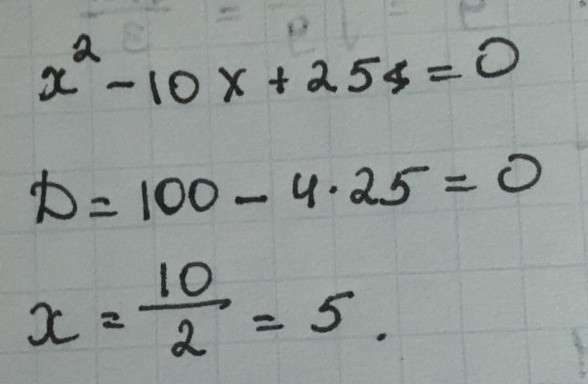 x² - 10x + 25 = 0
D = 100 - 4·25 = 0
x = 10/2 = 5.